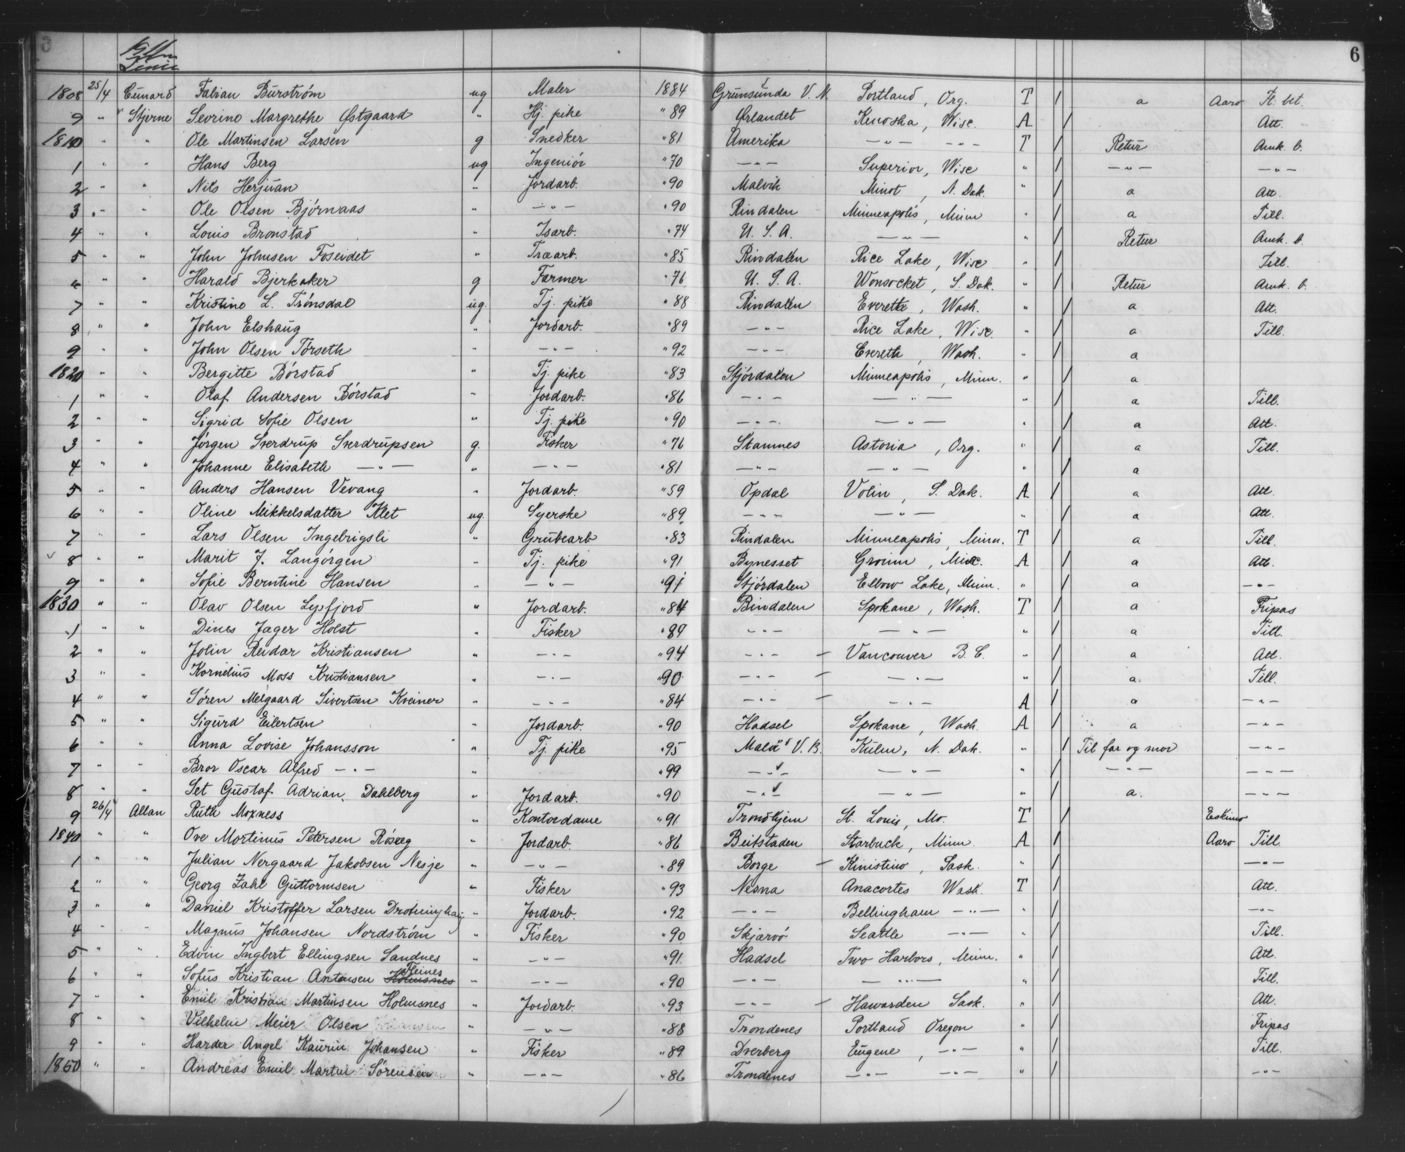 6
Linie
1808 25/4 Cunard Fabian Burström ug Maler 1884 Grunsunda V. N. Portland, Org. T / a Aaro Kt. bet.
9 " Stjerne Sevrine Margrethe Østgaard " Hj. pike " 89 Ørlandet Kenosha, Wisc A / Att.
1810 " " Ole Martinsen Larsen g Snedker " 81 Amerika — " — — " — T / Retur Amk. b.
1 " " Hans Berg ug Ingeniør " 70 — " — Superior, Wisc " / — " — — " —
2 " " Nils Herjuan " Jordarb. " 90 Malvik Minot, N. Dak. " / a Att.
3 " " Ole Olsen Bjørnaas " — " — " 90 Rindalen Minneapolis, Minn " / a Till.
4 " " Louis Bronstad " Isarb. " 74 U. S. A. — " — " / Retur Amk. b.
5 " " John Johnsen Foseidet " Træarb. " 85 Rindalen Rice Lake, Wisc " / Till.
6 " " Harald Bjerkaker g Farmer " 76 U. S. A. Wonsocket, S. Dak. " / Retur Amk. b.
7 " " Kristine L. Trønsdal ug. Tj. pike " 88 Rindalen Everette, Wash. " / a Att.
8 " " John Elshaug " Jordarb. " 89 — " — Rice Lake, Wisc. " / a Till.
9 " " John Olsen Tørseth " — " — " 92 — " — Everette, Wash. " / a
1820 " " Bergitte Børstad " Tj. pike " 83 Stjørdalen Minneapolis, Minn. " / a
1 " " Olaf Andersen Børstad " Jordarb. " 86 — " — — " — " / a Till.
2 " " Sigrid Sofie Olsen " Tj. pike " 90 — " — — " — " / a Att.
3 " " Jørgen Sverdrup Sverdrupsen g. Fisker " 76 Stamnes Astoria, Org. " / a Till.
4 " " Johanne Elisabeth — " — " — " — " 81 — " — — " — " / a
5 " " Anders Hansen Vevang " Jordarb. " 59 Opdal Volin, S. Dak. A / a Att.
6 " " Oline Mikkelsdatter Klet ug. Syerske " 89 — " — — " — " / a Att.
7 " " Lars Olsen Ingebrigsli " Grubearb " 83 Rindalen Minneapolis, Minn. T / a Till.
8 " " Marit J. Langørgen " Tj. pike " 91 Bynesset A / a Att.
9 " " Sofie Berntine Hansen " — " — " 91 Stjørdalen Elbow Lake, Minn. " / a — " —
1830 " " Olav Olsen Lysfjord " Jordarb. " 84 Bindalen Spokane, Wash. T / a Fripas
1 " " Dines Jager Holst " Fisker " 89 — " — — " — " / a Till.
2 " " John Reidar Kristiansen " — " — " 94 — " — — Vancouver B. C. " / a Att.
3 " " Kornelius Moss Kristiansen " — " — " 90 — " — — " — " / a. Till.
4 " " Søren Melgaard Sivertsen Kveiner " — " — " 84 — " — — " — A / a — " —
5 " " Sigurd Eilertsen " Jordarb. " 90 Hadsel Spokane, Wash A / a — " —
6 " " Anna Lovise Johansson " Tj. pike " 95 Malå V. B. Kulm, N. Dak. " / Til far og mor — " —
7 " " Bror Oscar Alfred — " — " " 99 — " — — " — " / — " — —
8 " " Set Gustaf Adrian Dahlberg " Jordarb. " 90 — " — — " — " / a. — " —
9 26/4 Allan Ruth Moxness " Kontordame " 91 Trondhjem St. Louis, Mo. T / Eskimo
1840 " " Ove Mortinus Petersen Røseg " Jordarb. " 86 Beitstaden Starbuck, Minn A / Aaro Till
1 " " Julian Nergaard Jakobsen Nesje " — " — " 89 Borge — Kinistino, Sask " / — " —
2 " " Georg Zahl Guttormsen " Fisker " 93 Nesna Anacortes Wash. T / Att.
3 " " Daniel Kristoffer Larsen Drotninghaug " Jordarb. " 92 — " — Bellingham — " — " / — " —
4 " " Magnus Johansen Nordstrøm " Fisker " 90 Skjærvö Seattle — " — " / Till.
5 " " Edvin Ingbert Ellingsen Sandnes " — " — " 91 Hadsel Two Harbors, Minn. " / Att.
6 " " Sofus Kristian Antonsen Holmsnes Reines " — " — " 90 — " — — " — " / Till.
7 " " Emil Kristian Martinsen Holmsnes " Jordarb. " 93 — " — — Hawarden Sask. " / Att.
8 " " Vilhelm Meier Olsen " — " — " 88 Trondenes Portland Oregon " / Fripas
9 " " Harder Angel Kaurin Johansen " Fisker " 89 Dverberg Eugene, — " — " / Till.
1850 " Andreas Emil Martin Sørensen " — " — " 86 Trondenes — " — — " — " / — " —